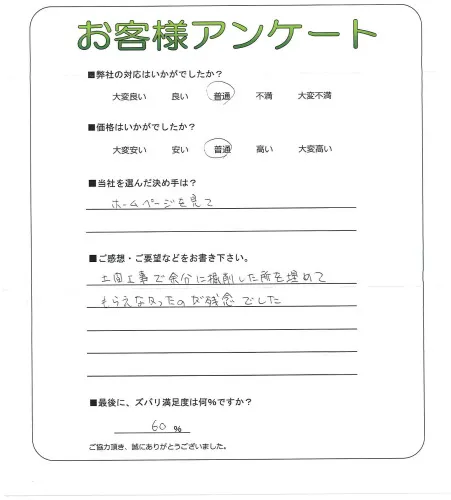 お客様アンケート
■弊社の対応はいかがでしたか？
大変良い 良い 普通 不満 大変不満
■価格はいかがでしたか？
大変安い 安い 普通 高い 大変高い
■当社を選んだ決め手は？
ホームページを見て
■ご感想・ご要望などをお書き下さい。
土間工事で余分に掘削した所を埋めて
もらえなかったのが残念でした
■最後に、ズバリ満足度は何％ですか？
60 %
ご協力頂き、誠にありがとうございました。